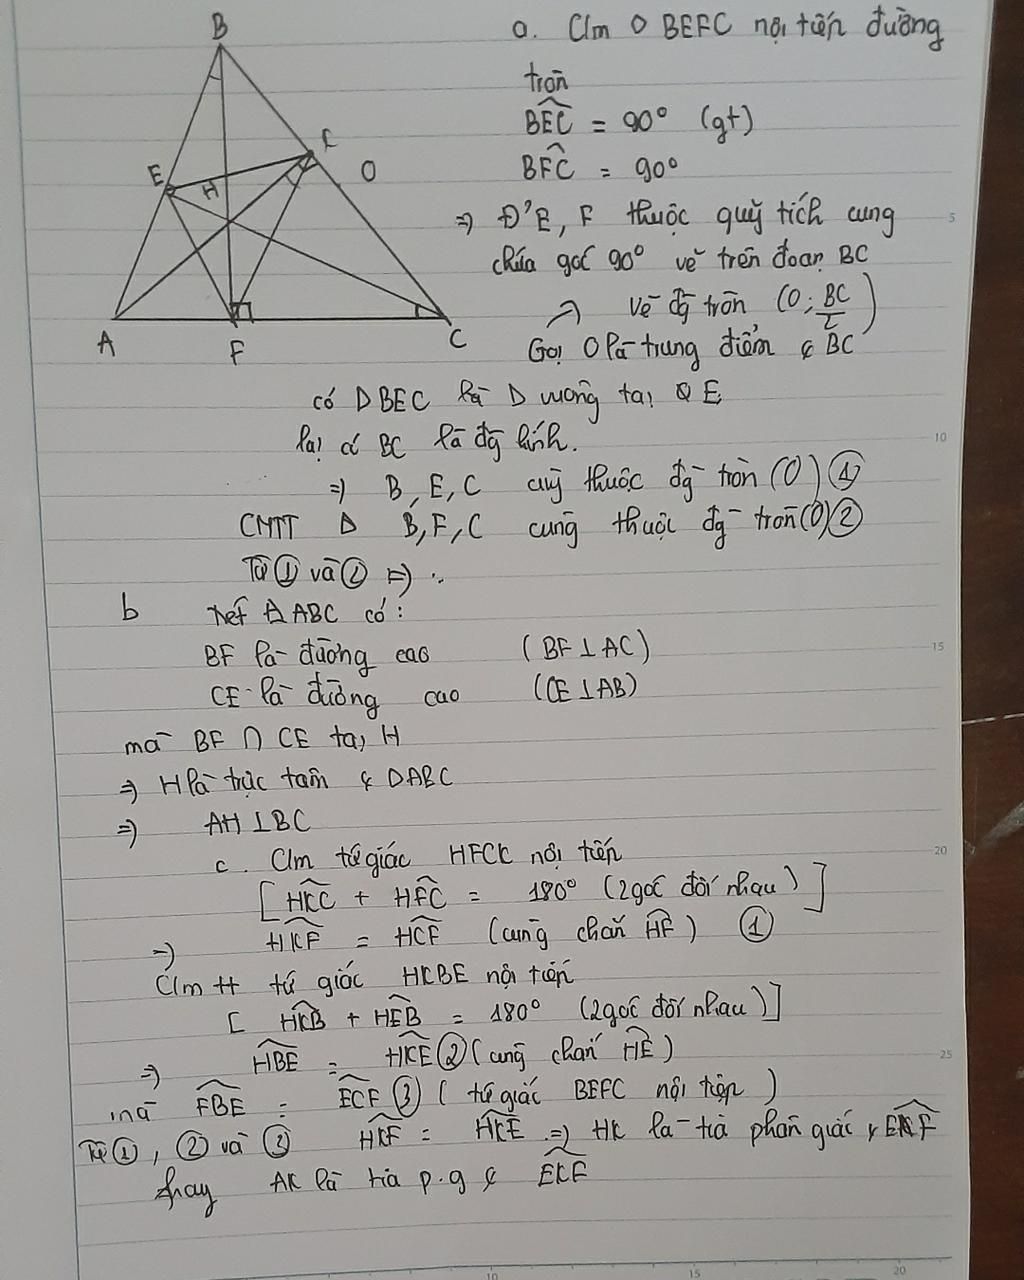 B
E
H
K
O
A
F
C
a. C/m ◊ BEFC nội tiếp đường
tròn
BEC = 90° (gt)
BFC = 90°
=> Đ' E, F thuộc quỹ tích cung
chứa góc 90° vẽ trên đoạn BC
=> Vẽ đg tròn (O; BC/2)
Gọi O là trung điểm ¢ BC
có Δ BEC là Δ vuông tại E
lại có BC là đg kính.
=> B, E, C cùng thuộc đg tròn (O) ①
CMTT Δ B, F, C cùng thuộc đg tròn (O) ②
Từ ① và ② => ..
b Xét Δ ABC có:
BF là đường cao (BF ⊥ AC)
CE là đường cao (CE ⊥ AB)
mà BF ∩ CE tại H
=> H là trực tâm ¢ ΔABC
=> AH ⊥ BC
c. C/m tứ giác HFCK nội tiếp
[HKC + HFC = 180° (2 góc đối nhau)]
=> HKF = HCF (cùng chắn HF) ①
C/m tt tứ giác HKBE nội tiếp
[HKB + HEB = 180° (2 góc đối nhau)]
=> HBE = HKE ② (cùng chắn HE)
mà FBE = ECF ③ (tứ giác BEFC nội tiếp)
Từ ①, ② và ③ HKF = HKE => HK là tia phân giác ¢ EKF
hay AK là tia p.g ¢ EKF